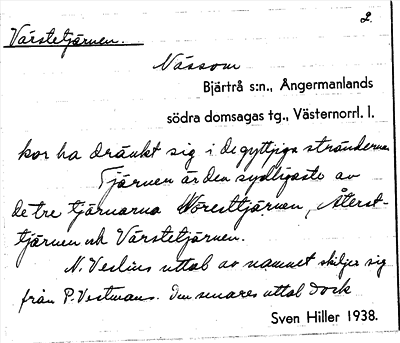 2.
Värstetjärnen.
Nässom
Bjärtrå s:n., Ångermanlands
södra domsagas tg., Västernorrl. l.
kor ha dränkt sig i de gyttjiga stränderna
Tjärnen är den sydligaste av
de tre tjärnarna Noresttjärnen, Återst-
tjärnen och Värstetjärnen.
N. Veslins uttal av namnet skiljer sig
från P. Vestmans. Den senares uttal dock
Sven Hiller 1938.